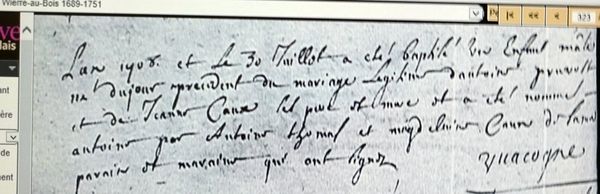 Wierre-au-Bois 1689-1751
323
ve
lais
ant
ère
de
ment
L'an 1708. et le 30 Juillet a esté baptisé un Enfant mâle
né du jour precedent du mariage legitime d'antoine prevost
et de Jeanne Caux ses pere et mere et a esté nommé
antoine par Antoine thomas et Caux de
parain et maraine qui ont signez